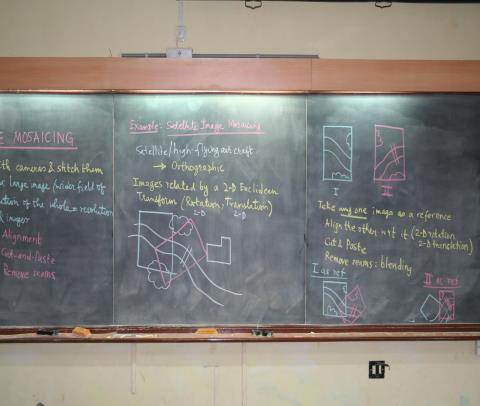 E MOSAICING
ith cameras & stitch them
e large image (wider field of
ction of the whole = resolution
images
Alignment
Cut-and-Paste
Remove seams
Example: Satellite Image Mosaicing
Satellite/high-flying aircraft
→ Orthographic
Images related by a 2-D Euclidean
Transform (Rotation, Translation)
2-D 2-D
I II
Take any one image as a reference
Align the other w.r.t it (2-D rotation
2-D translation)
Cut & Paste
Remove seams: blending
I as ref
II as ref